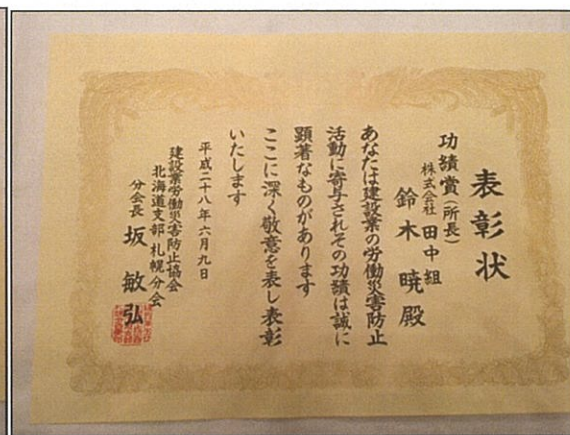 表彰状
功績賞(所長)
株式会社 田中組
鈴木 暁 殿
あなたは建設業の労働災害防止
活動に寄与されその功績は誠に
顕著なものがあります
ここに深く敬意を表し表彰
いたします
平成二十八年六月九日
建設業労働災害防止協会
北海道支部 札幌分会
分会長 坂 敏弘